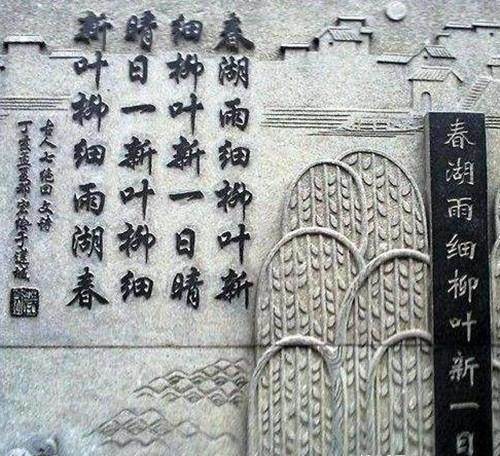 春湖雨细柳叶新
细柳叶新一日晴
晴日一新叶柳细
新叶柳细雨湖春
古人七绝回文诗
丁亥孟夏
春湖雨细柳叶新一日